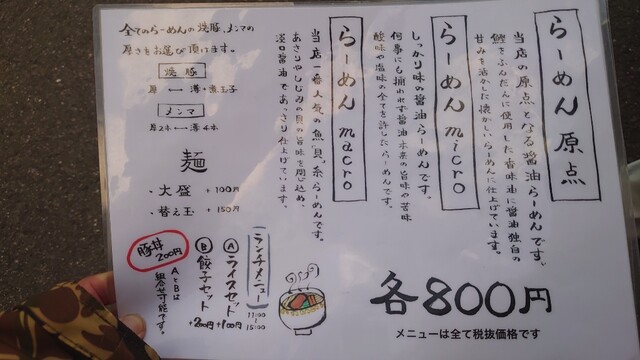 らーめん 原点
当店の原点となる醤油らーめんです。
鰹をふんだんに使用した香味油に醤油独自の
甘みを活かした懐かしいらーめんに仕上げています。
らーめん micro
しっかり味の醤油らーめんです。
何事にも捕われず醤油本来の旨味や苦味
酸味や塩味の全てを許したらーめんです。
らーめん macro
当店一番人気の魚"貝"系らーめんです。
あさりやしじみの貝の旨味を閉じ込め、
淡口醤油であっさり仕上げています。
全てのらーめんの焼豚、メンマの
厚さをお選び頂けます。
焼豚
厚 ←→ 薄・煮玉子
メンマ
厚2本 ←→ 薄4本
麺
、大盛 +100円
、替え玉 +150円
ランチメニュー
11:00〜15:00
Ⓐライスセット +100円
Ⓑ餃子セット +200円
豚丼 200円
AとBは
組合せ可能です。
各800円
メニューは全て税抜価格です